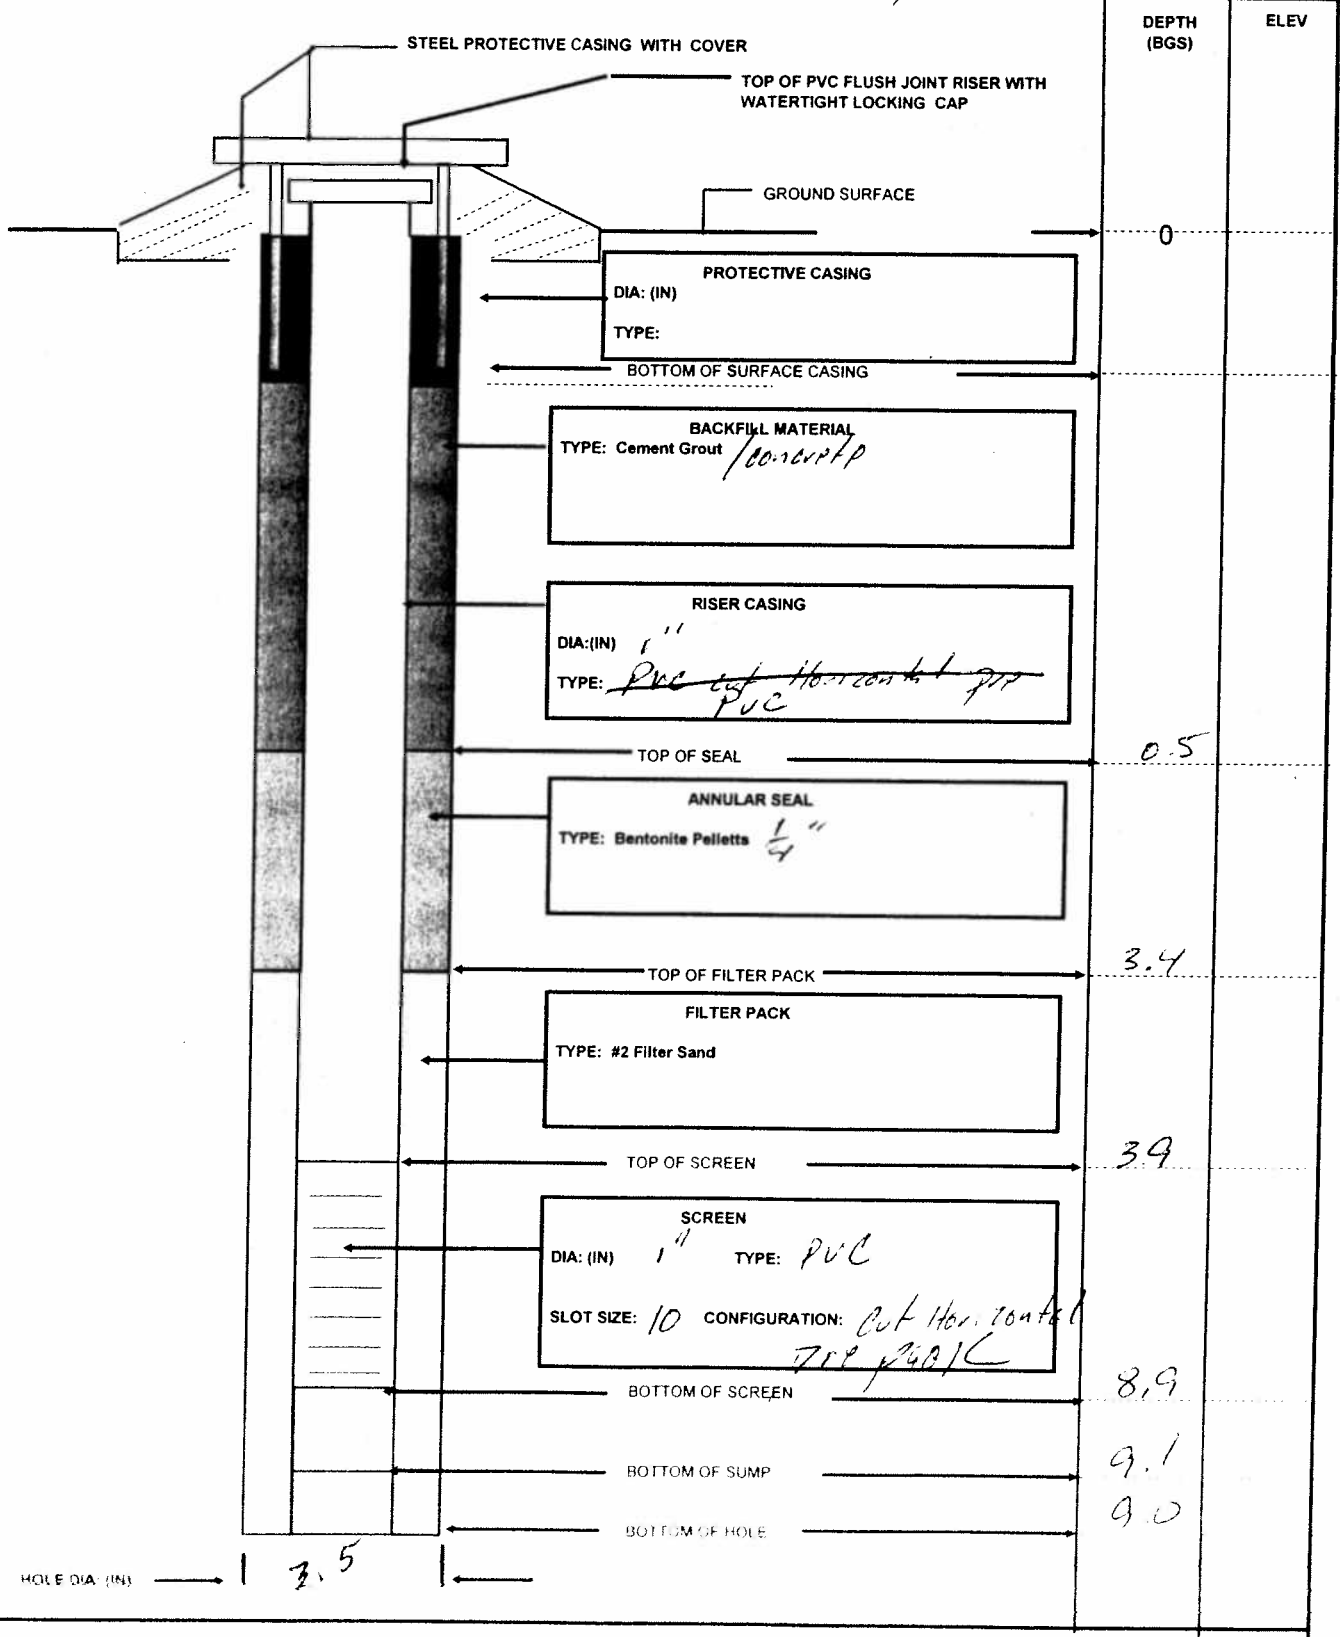 DEPTH
(BGS)
ELEV
STEEL PROTECTIVE CASING WITH COVER
TOP OF PVC FLUSH JOINT RISER WITH
WATERTIGHT LOCKING CAP
GROUND SURFACE
0
PROTECTIVE CASING
DIA: (IN)
TYPE:
BOTTOM OF SURFACE CASING
BACKFILL MATERIAL
TYPE: Cement Grout /concrete
RISER CASING
DIA:(IN) 1"
TYPE: PVC cut Horizontal pre
PVC
TOP OF SEAL 0.5
ANNULAR SEAL
TYPE: Bentonite Pelletts 1/4"
TOP OF FILTER PACK 3.4
FILTER PACK
TYPE: #2 Filter Sand
TOP OF SCREEN 3.9
SCREEN
DIA: (IN) 1" TYPE: PVC
SLOT SIZE: 10 CONFIGURATION: Cut Horizontal
Pre pack
BOTTOM OF SCREEN 8.9
BOTTOM OF SUMP 9.1
BOTTOM OF HOLE 9.0
HOLE DIA: (IN) 3.5